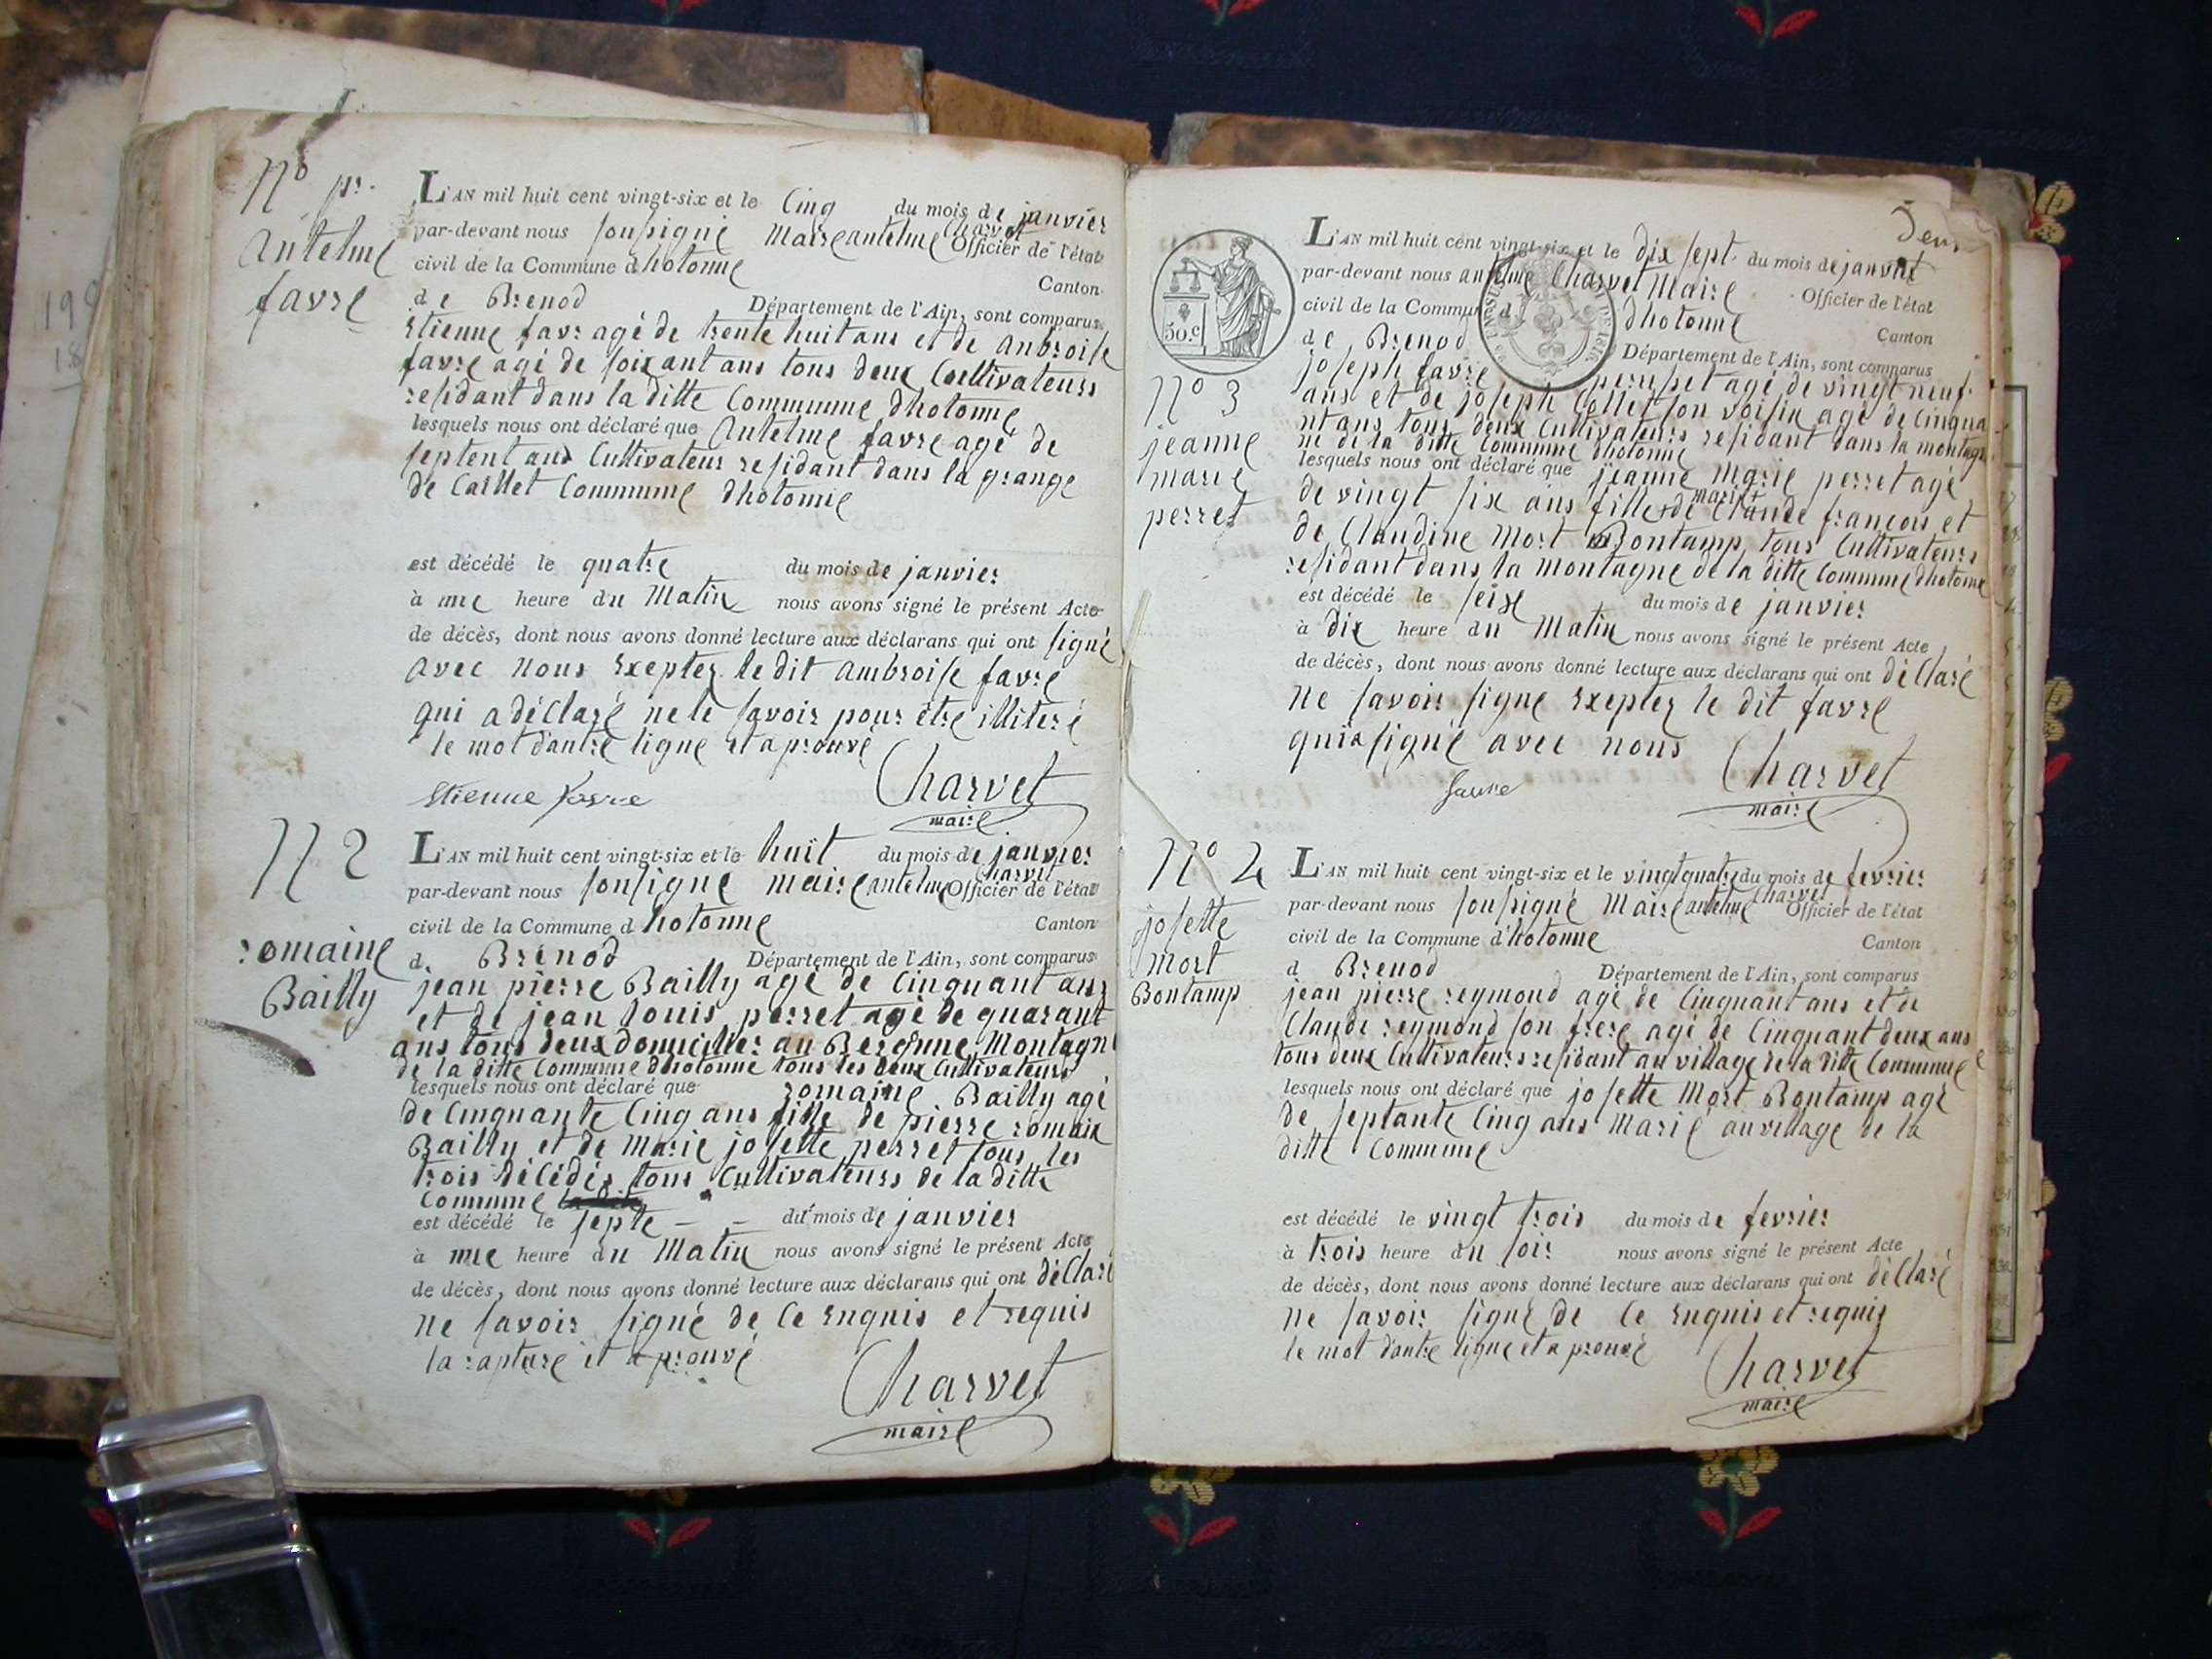 N° pr.
antelme
favre
L'AN mil huit cent vingt-six et le Cinq du mois de janvier
par-devant nous soussigné Maire antelme Charvet Officier de l'état
civil de la Commune dhotonne Canton
de Brenod Département de l'Ain, sont comparus
Etienne favr agé de trente huit ans et de anbroise
favre agé de soixant ans tous deux Cultivateurs
residant dans la ditte Commune dhotonne
lesquels nous ont déclaré que antelme favre agé de
septent ans Cultivateur residant dans la grange
de Caillet Commune dhotonne
est décédé le quatre du mois de janvier
à une heure du Matin nous avons signé le présent Acte
de décès, dont nous avons donné lecture aux déclarans qui ont signé
avec nous Exeptez le dit ambroise favre
qui a déclaré ne le savoir pour être illiteré
le mot dantre ligne et aprouvé
Etienne favre Charvet
maire
N 2
romaine
Bailly
L'AN mil huit cent vingt-six et le huit du mois de janvier
par-devant nous sousigné maire antelme Charvet Officier de l'état
civil de la Commune d hotonne Canton
d. Brénod Département de l'Ain, sont comparus
jean pierre Bailly agé de Cinquant ans
et de jean louis perret agé de quarant
ans tous deux domicilier au Bergonne Montagn
de la ditte Commune dhotonne tous les deux Cultivateurs
lesquels nous ont déclaré que romaine Bailly agé
de Cinquante Cinq ans fille de pierre romain
Bailly et de Marie josette perret tous les
trois décédés tous Cultivateurs de la ditte
Commune
est décédé le septe du mois de janvier
à une heure du Matin nous avons signé le présent Acte
de décès, dont nous avons donné lecture aux déclarans qui ont déclaré
ne savoir signé de Ce Enquis et requis
la rapture et aprouvé
Charvet
maire
Deux
L'AN mil huit cent vingt-six et le dix sept du mois de janvier
par-devant nous antelme Charvet Maire Officier de l'état
civil de la Commun d dhotonne Canton
de Brenod Département de l'Ain, sont comparus
50.c
N° 3
jeanne
marie
perret
joseph favre agé de vingt neuf
ans et de joseph Collet son voisin agé de Cinqua
nt ans tous deux Cultivateurs residant dans la montag
ne de la ditte Commune dhotonne
lesquels nous ont déclaré que jeanne Marie perret agé
de vingt six ans fille de Claude françois et
de Claudine Mort Bontamp tous Cultivateurs
residant dans la Montagne de la ditte Commune dhotonne
est décédé le seise du mois de janvier
à dix heure du Matin nous avons signé le présent Acte
de décès, dont nous avons donné lecture aux déclarans qui ont déClaré
ne savoir signe Exeptez le dit favre
qui a signé avec nous
favre Charvet
maire
N° 4
josette
mort
Bontamp
L'AN mil huit cent vingt-six et le vingt quatre du mois de fevrier
par-devant nous sousigné Maire antelme Charvet Officier de l'état
civil de la Commune d'hotonne Canton
d Brenod Département de l'Ain, sont comparus
jean pierre reymond agé de Cinquant ans et de
Claude reymond son frere agé de Cinquant deux ans
tous deux Cultivateurs residant au village de la ditte Commune
lesquels nous ont déclaré que josette Mort Bontamp agé
de septante Cinq ans Marié au village de la
ditte Commune
est décédé le vingt trois du mois de fevrier
à trois heure du soir nous avons signé le présent Acte
de décès, dont nous avons donné lecture aux déclarans qui ont déClaré
ne savoir signé de Ce Enquis et requis
le mot dantre ligne et aprouvé
Charvet
maire